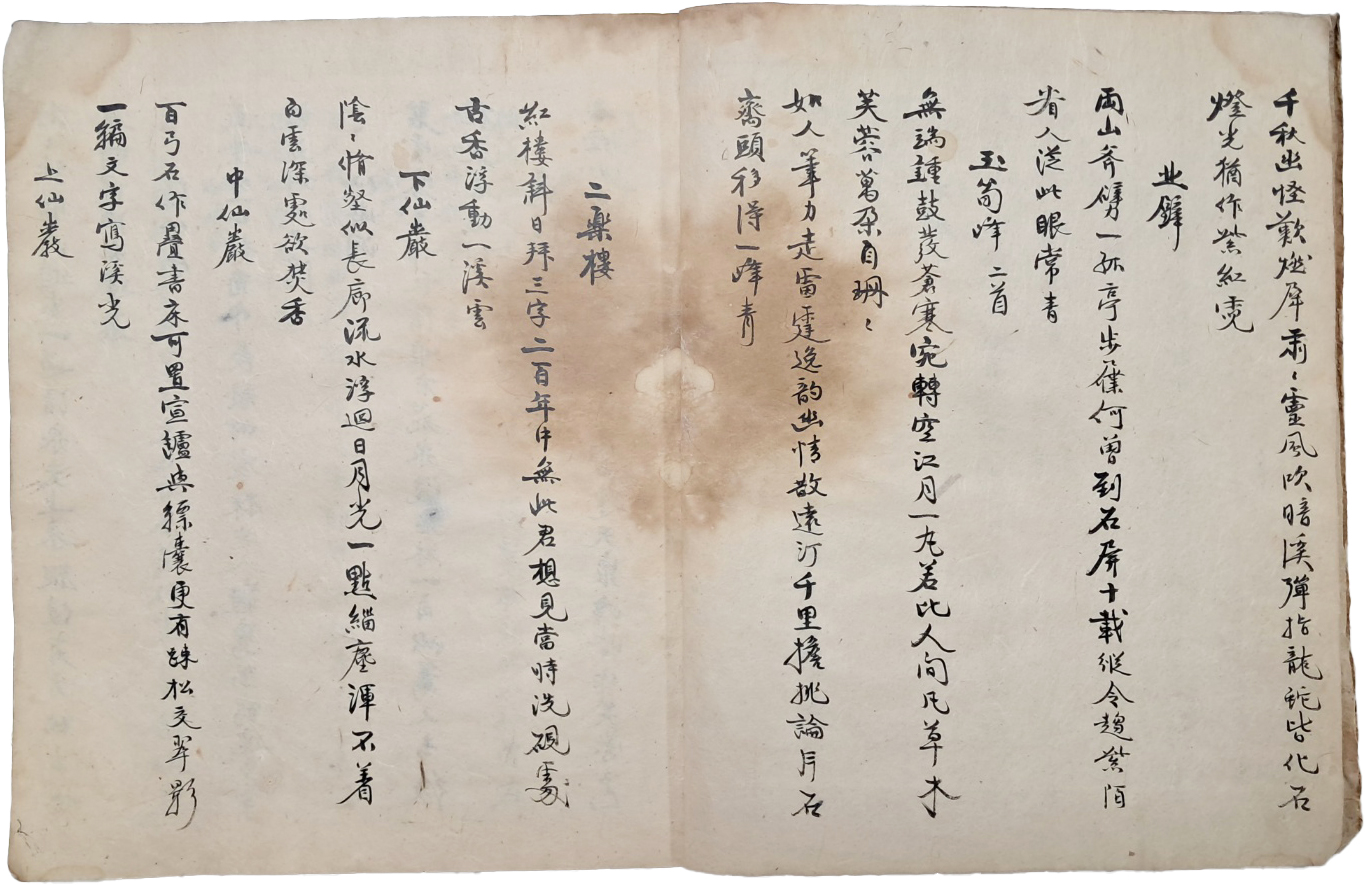 千秋幽怪歎燃犀肅〻靈風吹暗溪彈指龍蛇皆化石
燈光猶作紫紅霓
北壁
兩山斧劈一孤亭步屧何曾到石屛十載縱令趨紫陌
省人從此眼常靑
玉筍峰 二首
無端鍾鼓發蒼寒宛轉空江月一丸若比人間凡草木
芙蓉萬朶自珊〻
如人筆力走雷霆逸韵幽情散遠汀千里擔挑論片石
齋頭移得一峰靑
二樂樓
紅樓斜日拜三字二百年中無此君想見當時洗硯處
古香浮動一溪雲
下仙巖
陰〻脩壑似長廊流水浮廻日月光一點緇塵渾不着
白雲深處欲焚香
中仙巖
百弓石作疊書床可置宣罏與縹囊更有疎松交翠影
一編文字寫溪光
上仙巖